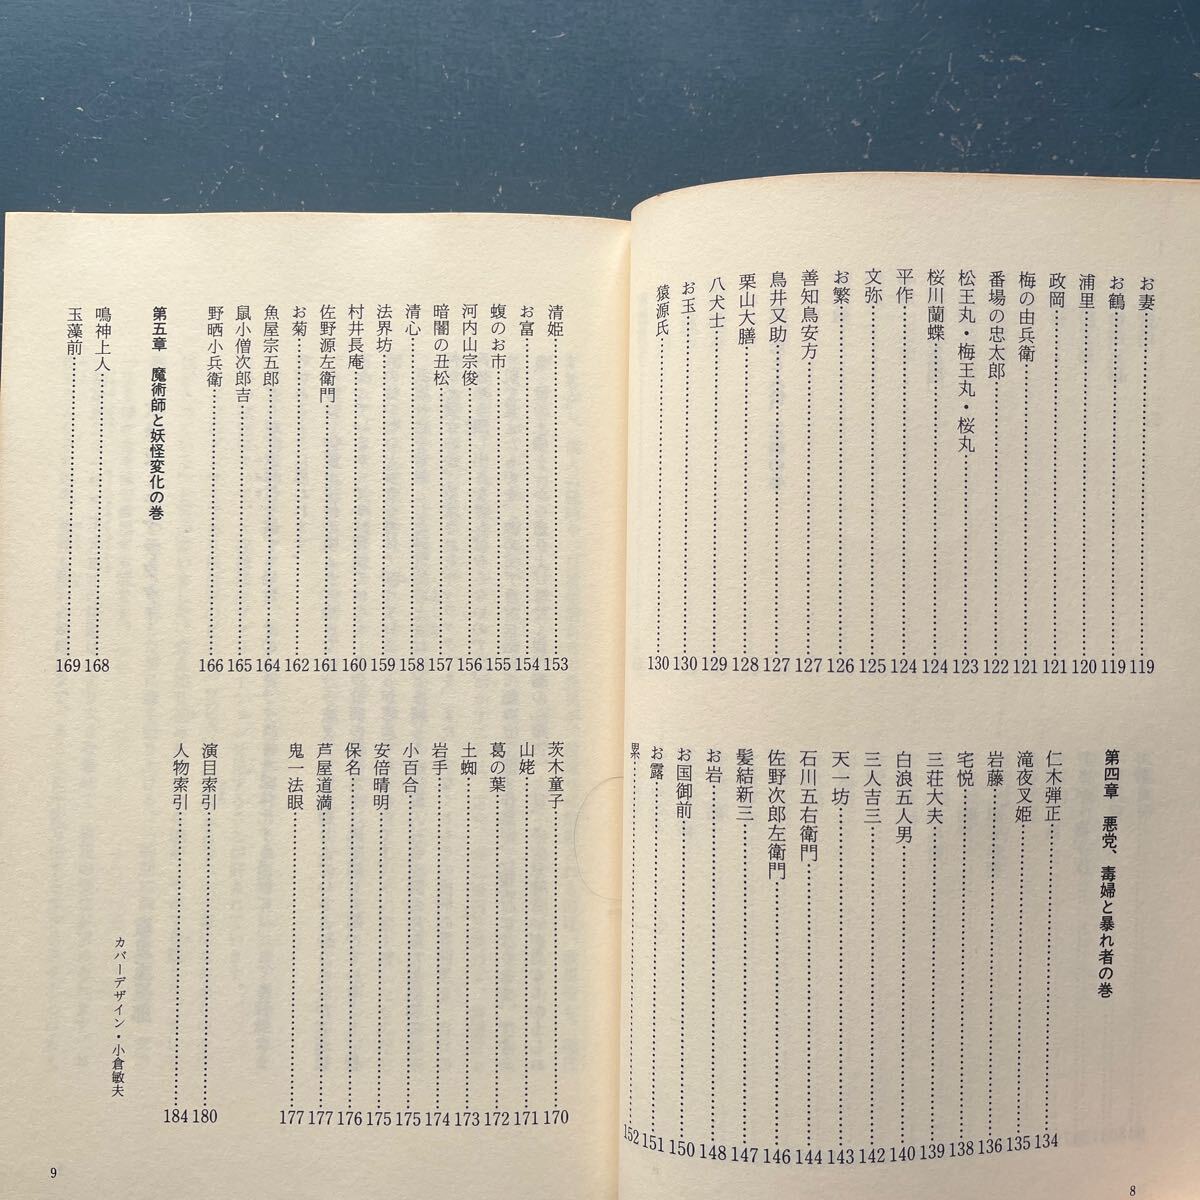 お妻……119
お鶴……119
浦里……120
政岡……121
梅の由兵衛……121
番場の忠太郎……122
松王丸・梅王丸・桜丸……123
桜川蘭蝶……124
平作……124
文弥……125
お繁……126
善知鳥安方……127
鳥井又助……127
栗山大膳……128
八犬士……129
お玉……130
猿源氏……130
第四章　悪党、毒婦と暴れ者の巻
仁木弾正……134
滝夜叉姫……135
岩藤……136
宅悦……138
三荘大夫……139
白浪五人男……140
三人吉三……142
天一坊……143
石川五右衛門……144
佐野次郎左衛門……146
髪結新三……147
お岩……148
お国御前……150
お露……151
累……152
8
清姫……153
お富……154
蝮のお市……155
河内山宗俊……156
暗闇の丑松……157
清心……158
法界坊……159
村井長庵……160
佐野源左衛門……161
お菊……162
魚屋宗五郎……164
鼠小僧次郎吉……165
野晒小兵衛……166
第五章　魔術師と妖怪変化の巻
鳴神上人……168
玉藻前……169
茨木童子……170
山姥……171
葛の葉……172
土蜘……173
岩手……174
小百合……175
安倍晴明……175
保名……176
芦屋道満……177
鬼一法眼……177
演目索引……180
人物索引……184
カバーデザイン・小倉敏夫
9